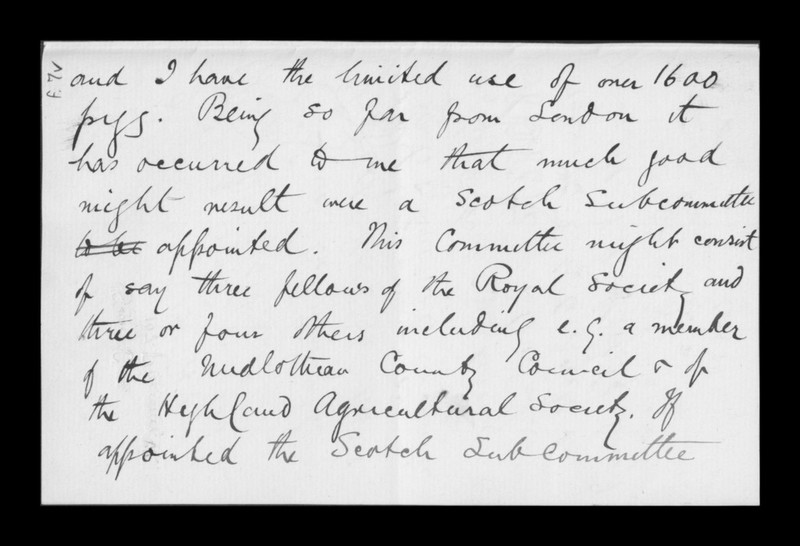 f. 7v
and I have the limited use of over 1600
pigs. Being so far from London it
has occurred to me that much good
might result were a Scotch Subcommittee
to be appointed. This Committee might consist
of say three fellows of the Royal Society and
three or four others including e.g. a member
of the Midlothian County Council & of
the Highland Agricultural Society. If
appointed the Scotch Subcommittee